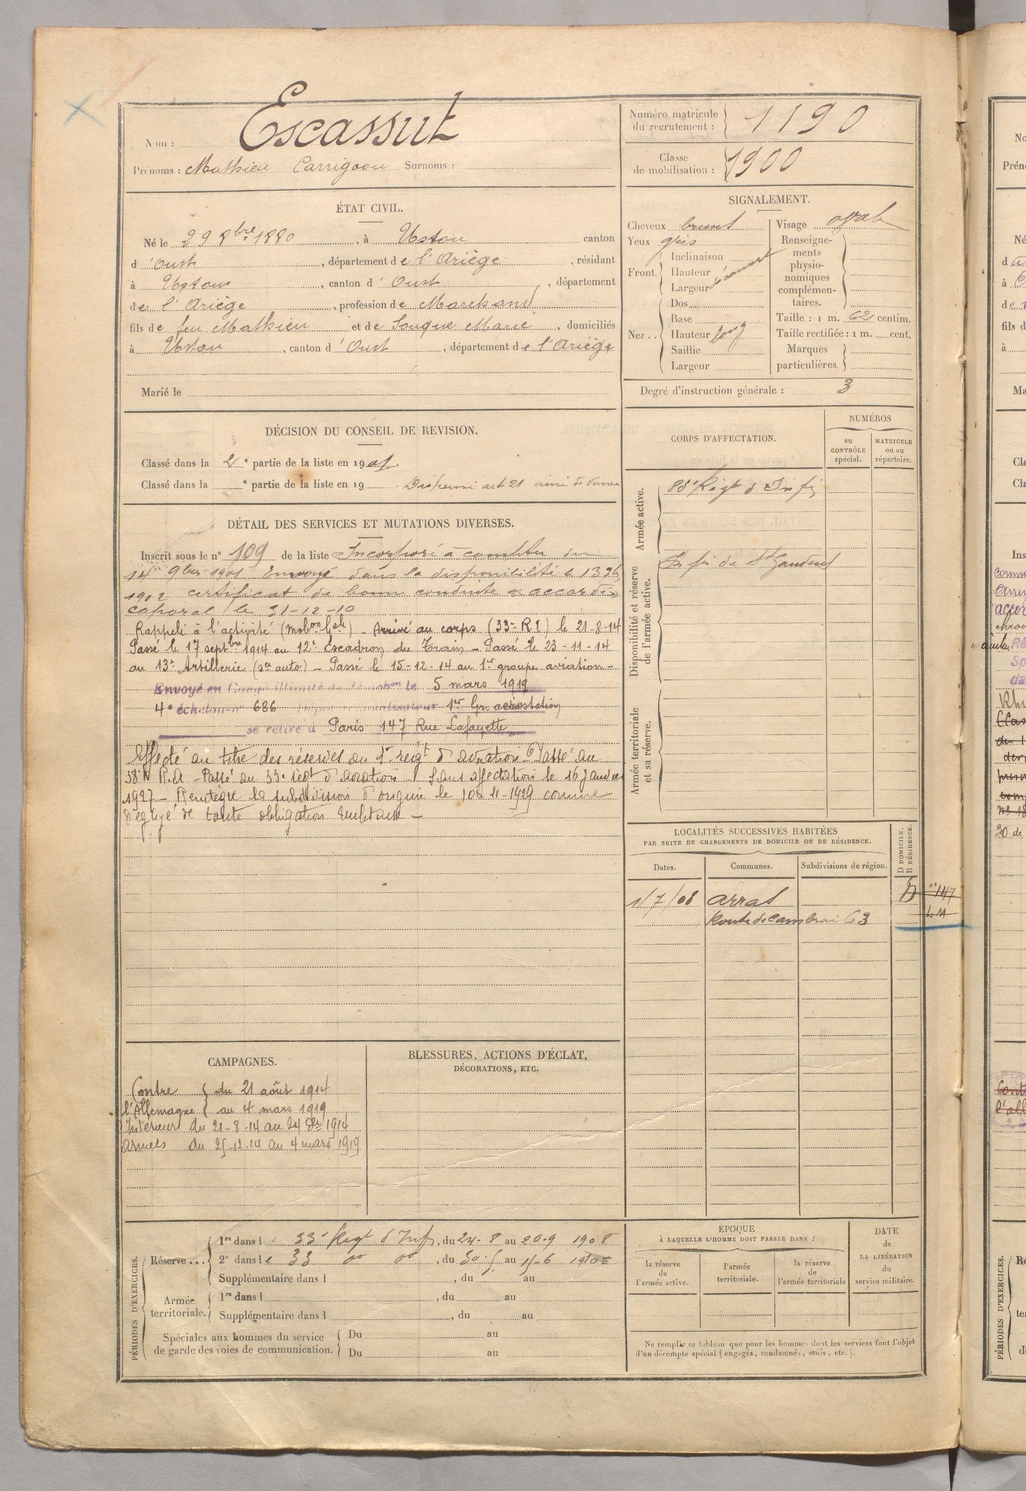 Nom : Escassut
Prénoms : Mathieu Surnoms :
Numéro matricule du recrutement : 1190
Classe de mobilisation : 1900
ÉTAT CIVIL.
Né le 29 8bre 1880, à Ustou canton
d'Oust, département de l'Ariège, résidant
à Ustou, canton d'Oust, département
de l'Ariège, profession de Marchand
fils de feu Mathieu et de Souque Marie, domiciliés
à Ustou, canton d'Oust, département de l'Ariège
Marié le
SIGNALEMENT.
Cheveux bruns
Yeux gris
Front. Inclinaison
Hauteur
Largeur
Nez.. Dos
Base
Hauteur long
Saillie
Largeur
Visage ovale
Renseignements physionomiques complémentaires.
Taille : 1 m. 62 centim.
Taille rectifiée : 1 m. cent.
Marques particulières.
Degré d'instruction générale : 3
DÉCISION DU CONSEIL DE REVISION.
Classé dans la 2e partie de la liste en 1901
Classé dans la e partie de la liste en 19 . art 21
DÉTAIL DES SERVICES ET MUTATIONS DIVERSES.
Inscrit sous le n° 109 de la liste Incorporé à compter du
14 9bre 1901 Envoyé dans la disponibilité le
1902 certificat de bonne conduite accordé
caporal le 21-12-10
Rappelé à l'activité (Mobon Gale) – Arrivé au corps (33e RI) le 21-8-14
Passé le 17 septbre 1914 au 12e Escadron du Train – Passé le 23-11-14
au 13e Artillerie (son auto) – Passé le 15-12-14 au 1er groupe aviation –
Envoyé en Congé illimité de démobon le 5 mars 1919
4e échelon no 686 1er Gr. aérostation
se retire à Paris 147 Rue Lafayette
Affecté au titre des réserves au 1er régt d'aviation Passé au
R.A – Passé au 33e régt d'aviation Sans affectation le 16 janvier
1927 – Réintègre la subdivision d'origine le 10-11-1929 comme
dégagé de toute obligation militaire –
CORPS D'AFFECTATION.
NUMÉROS
au CONTRÔLE spécial.
MATRICULE ou au répertoire.
Armée active.
83e Régt d'Infie
Disponibilité et réserve de l'armée active.
Inf. de St Gaudens
Armée territoriale et sa réserve.
LOCALITÉS SUCCESSIVES HABITÉES
PAR SUITE DE CHANGEMENTS DE DOMICILE OU DE RÉSIDENCE.
Dates. Communes. Subdivisions de région.
D DOMICILE. R RÉSIDENCE.
1/7/08 Arras
Route de Cambrai 63
CAMPAGNES.
Contre l'Allemagne { du 21 août 1914
au 4 mars 1919
Intérieur du 21-8-14 au 24 Dbre 1914
Armées du 25-12-14 au 4 mars 1919
BLESSURES, ACTIONS D'ÉCLAT,
DÉCORATIONS, ETC.
PÉRIODES D'EXERCICES.
Réserve...
1re dans le 33e Régt d'Inf, du 24-8 au 20-9 1908
2e dans le 33 do do, du au
Supplémentaire dans l , du au
Armée territoriale.
1re dans l , du au
Supplémentaire dans l , du au
Spéciales aux hommes du service de garde des voies de communication.
Du au
Du au
ÉPOQUE
À LAQUELLE L'HOMME DOIT PASSER DANS :
la réserve de l'armée active.
l'armée territoriale.
la réserve de l'armée territoriale
DATE de LA LIBÉRATION du service militaire.
Ne remplir ce tableau que pour les hommes dont les services font l'objet
d'un décompte spécial (engagés, condamnés, omis, etc.).